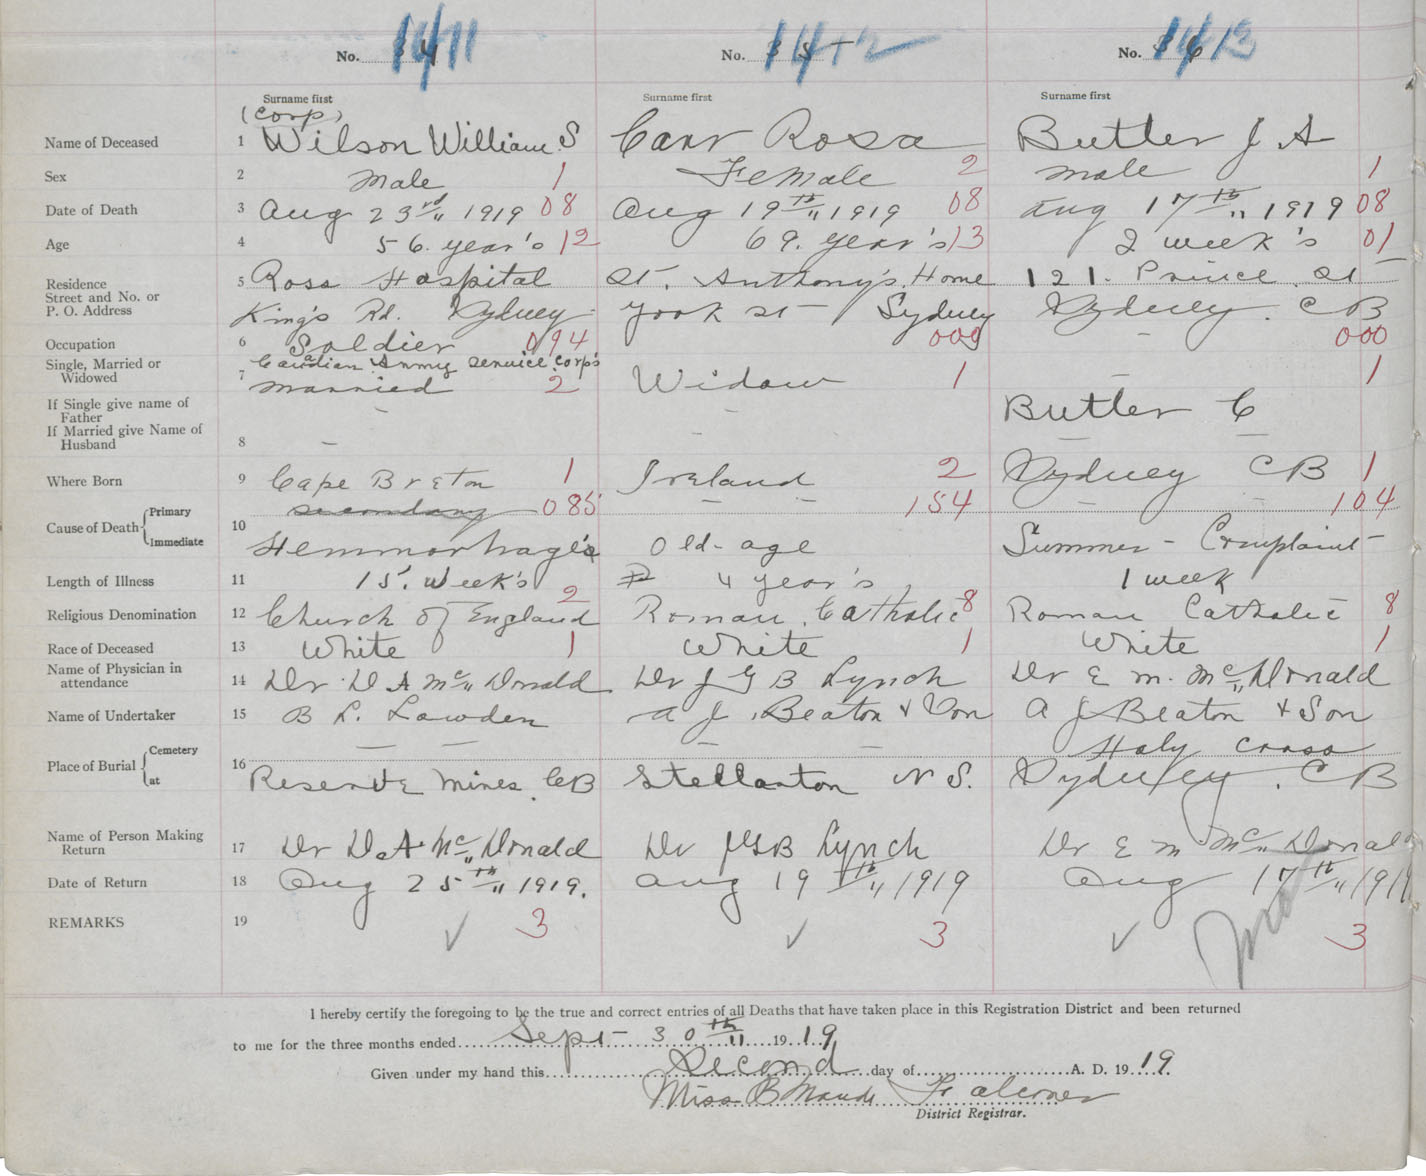 No. 1411 No. 1412 No. 1413
Surname first Surname first Surname first
(Corp)
Name of Deceased 1 Wilson William S Carr Rosa Butler J A
Sex 2 Male 1 Female 2 male 1
Date of Death 3 Aug 23rd" 1919 08 Aug 19th" 1919 08 Aug 17th" 1919 08
Age 4 56. year's 12 69. year's 13 2 week's 01
Residence 5 Ross Hospital St. Anthony's Home 121. Prince St
Street and No. or
P. O. Address King's Rd. Sydney York St Sydney Sydney. C B
Occupation 6 Soldier 094 009 - 000
Canadian Army Service Corp's
Single, Married or
Widowed 7 married 2 Widow 1 - 1
If Single give name of
Father - - Butler C
If Married give Name of
Husband 8 - - - -
Where Born 9 Cape Breton 1 Ireland 2 Sydney CB 1
Cause of Death Primary secondary 085 - - 154 - - 104
Immediate 10 Hemmorhage's Old-age Summer-Complaint
Length of Illness 11 15. Week's 4 year's 1 week
Religious Denomination 12 Church of England 2 Roman Catholic 8 Roman Catholic 8
Race of Deceased 13 White 1 White 1 White 1
Name of Physician in
attendance 14 Dr D A Mc" Donald Dr J G B Lynch Dr E M. Mc" Donald
Name of Undertaker 15 B L. Lawden A J. Beaton & Son A J Beaton & Son
Place of Burial Cemetery - - - - Holy Cross
at 16 Reserve Mines. CB Stellarton N S. Sydney. C B
Name of Person Making
Return 17 Dr D. A. Mc" Donald Dr JGB Lynch Dr E M Mc" Donald
Date of Return 18 Aug 25th" 1919. Aug 19th" 1919 Aug 17th" 1919
REMARKS 19 ✓ 3 ✓ 3 ✓ 3
I hereby certify the foregoing to be the true and correct entries of all Deaths that have taken place in this Registration District and been returned
to me for the three months ended Sept- 30th" 1919
Given under my hand this Second day of A. D. 1919.
Miss B Maude Falconer
District Registrar.